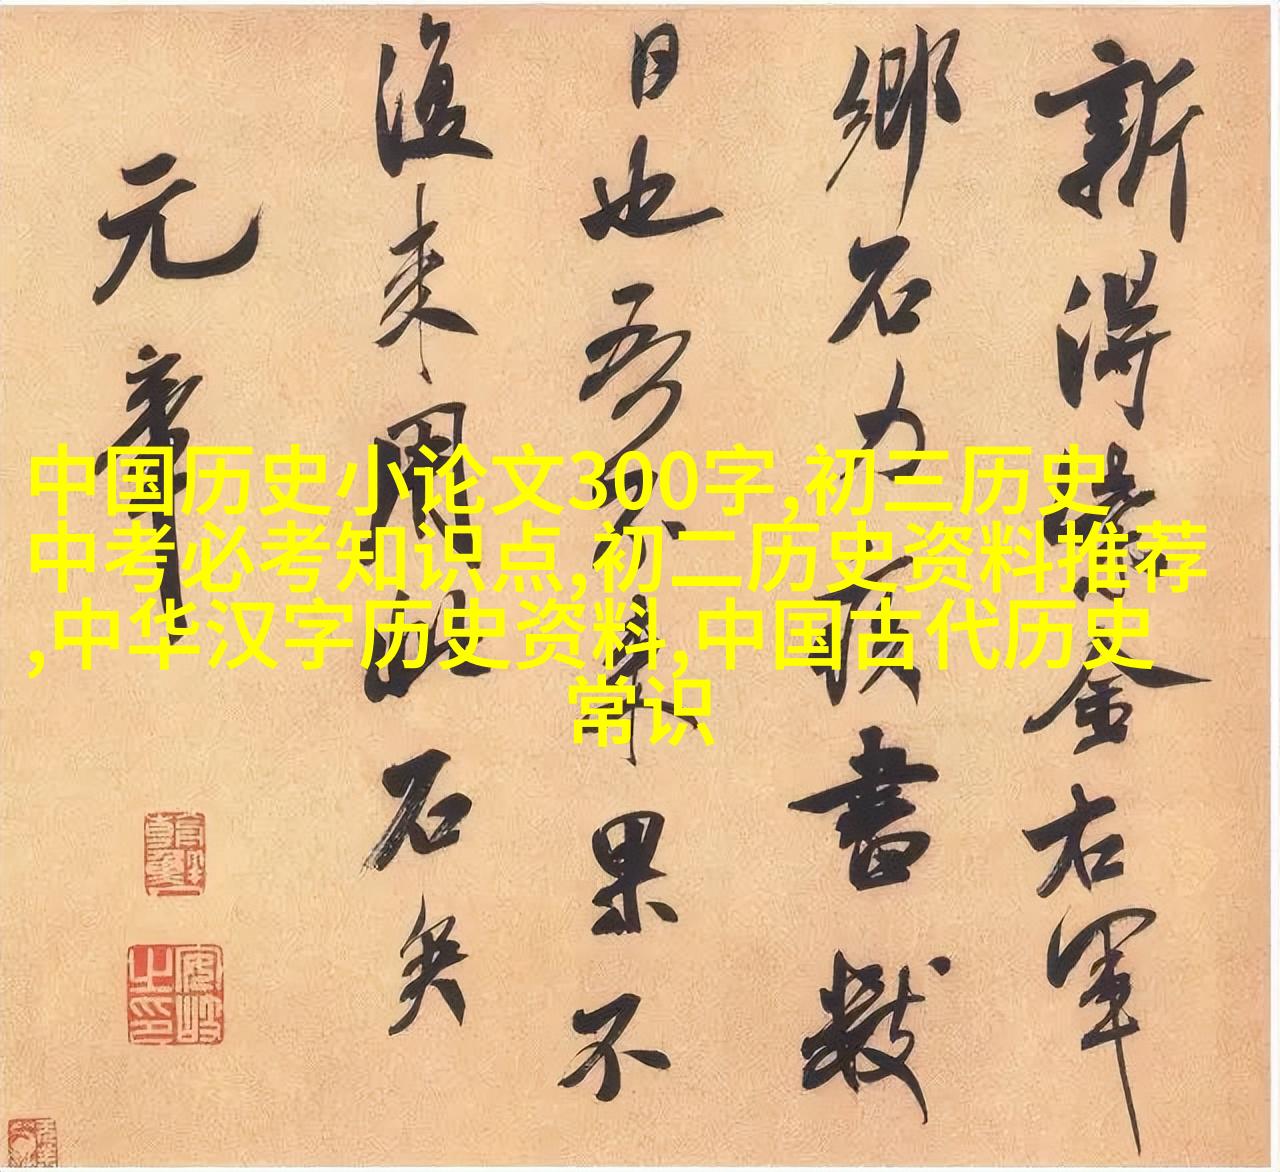 新得紫金右軍
鄉石力疾書數
日也吾不來果不
復來用此石矣
元章
中国历史小论文300字,初三历史
中考必考知识点,初二历史资料推荐
,中华汉字历史资料,中国古代历史
常识